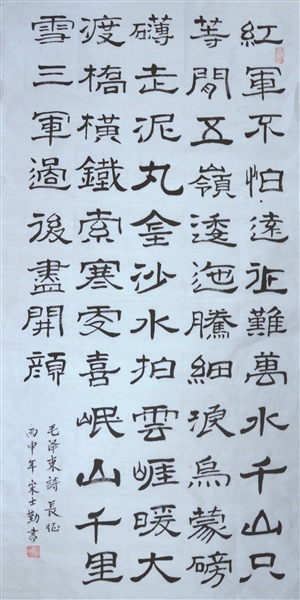 紅軍不怕遠征難萬水千山只
等閒五嶺逶迤騰細浪烏蒙磅
礴走泥丸金沙水拍雲崖暖大
渡橋橫鐵索寒更喜岷山千里
雪三軍過後盡開顏
毛泽東詩 長征
丙申年宋士勤書